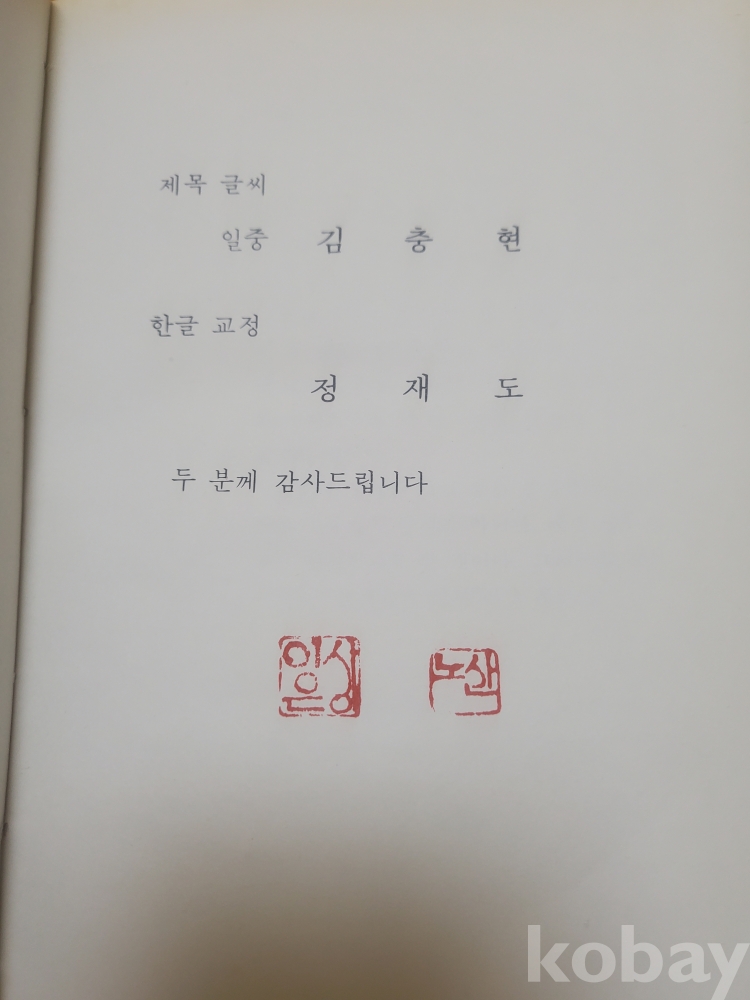 제목 글씨
일중 김 충 현
한글 교정
정 재 도
두 분께 감사드립니다
이은상
노산
kobay